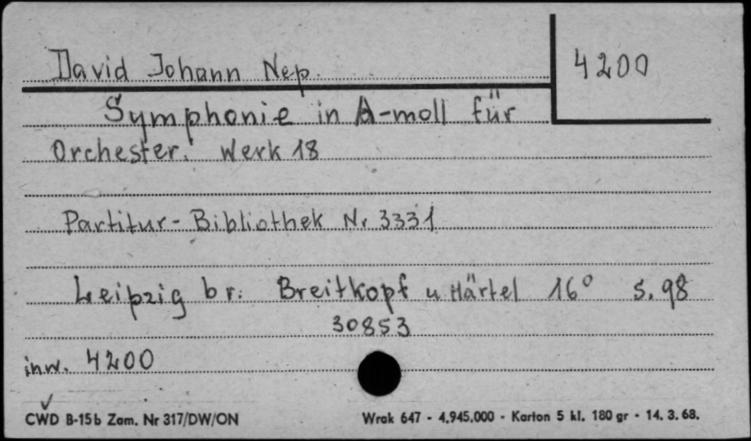 David Johann Nep.
4200
Symphonie in A-moll für
Orchester. Werk 18
Partitur-Bibliothek Nr 3331
Leipzig br. Breitkopf u Härtel 16° s. 98
30853
inw. 4200
CWD B-15b Zam. Nr 317/DW/ON
Wrak 647 - 4.945.000 - Karton 5 kl. 180 gr - 14. 3. 68.